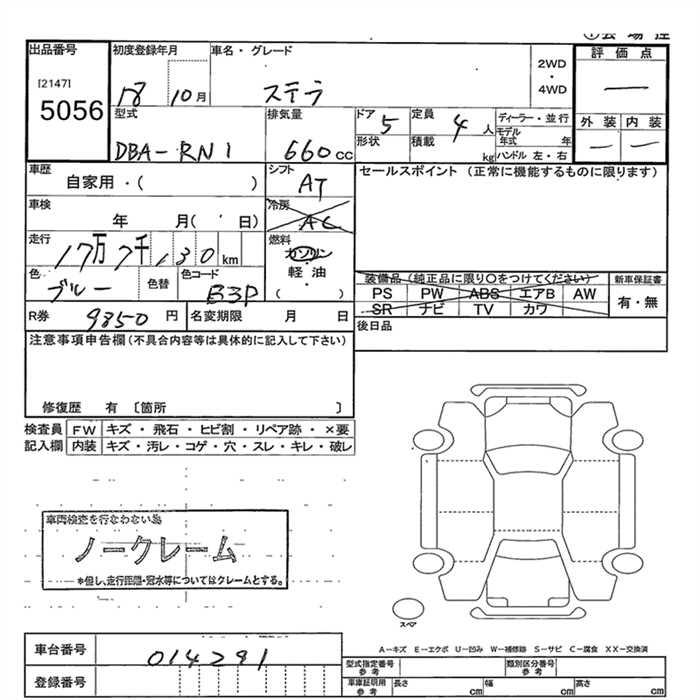 ①会場控
出品番号
[2147]
5056
初度登録年月
18 10月
車名・グレード
ステラ
2WD
・
4WD
評価点
—
外装 内装
— —
型式
DBA-RN1
排気量
660cc
ドア 5
形状
定員 4人
積載 kg
ディーラー・並行
モデル年式 年
ハンドル 左・右
車歴
自家用・( )
シフト
AT
セールスポイント (正常に機能するものに限ります)
車検
年 月( 日)
冷房
AC
走行
17万7千130km
燃料
ガソリン
軽・油
( )
色
ブルー
色替
色コード
B3P
装備品(純正品に限り○をつけてください)
PS PW ABS エアB AW
SR ナビ TV カワ
新車保証書
有・無
R券 9350円
名変期限 月 日
後日品
注意事項申告欄(不具合内容等は具体的に記入して下さい)
修復歴 有 〔箇所 〕
検査員 FW キズ・飛石・ヒビ割・リペア跡・×要
記入欄 内装 キズ・汚レ・コゲ・穴・スレ・キレ・破レ
車両検査を行なわない為
ノークレーム
*但し、走行距離・冠水等についてはクレームとする。
スペア
A-キズ E-エクボ U-凹み W-補修跡 S-サビ C-腐食 XX-交換済
車台番号 014291
登録番号
型式指定番号 参考
類別区分番号 参考
車庫証明用 参考 長さ cm 幅 cm 高さ cm